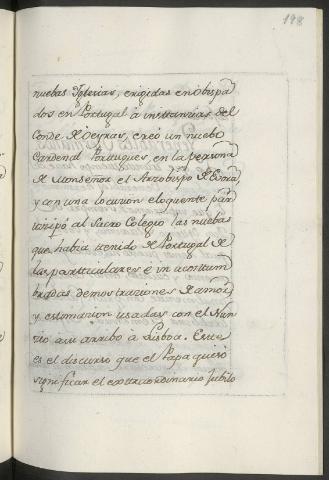 198
nuebas Iglesias, erigidas en Obispa
dos en Portugal à instancias del
Conde de Oeyras, creó un nuebo
Cardenal Portugues, en la persona
de Monseñor el Arzobispo de Evora,
y con una locucion eloquente par
ticipó al Sacro Colegio las nuebas
que habia tenido de Portugal de
las particulares è inacostum
bradas demostraciones de amor
y estimacion usadas con el Nun
cio a su arribo à Lisboa. Este
es el discurso que el Papa quiso
significar el extraordinario Jubilo